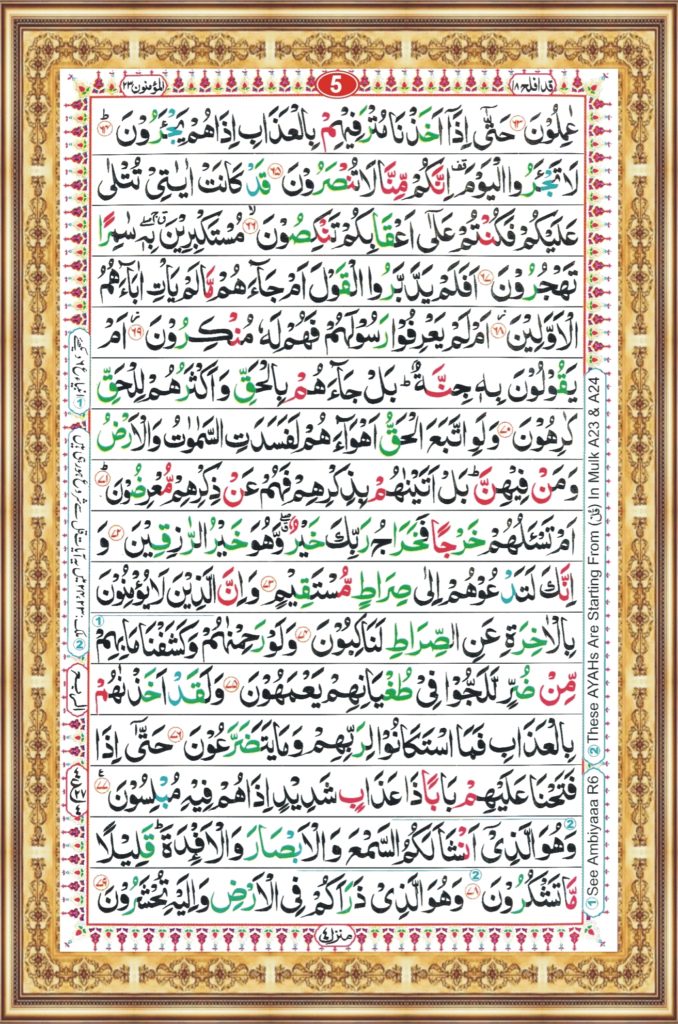 المؤمنون ٢٣
5
قد افلح ١٨
عٰمِلُوۡنَ ﴿۶۳﴾ حَتّٰٓى اِذَاۤ اَخَذۡنَا مُتۡرَفِيۡهِمۡ بِالۡعَذَابِ اِذَا هُمۡ يَجۡـَٔرُوۡنَ ؕ‏ ﴿۶۴﴾
لَا تَجۡـَٔرُوا الۡيَوۡمَ اِنَّكُمۡ مِّنَّا لَا تُنۡصَرُوۡنَ ﴿۶۵﴾ قَدۡ كَانَتۡ اٰيٰتِىۡ تُتۡلٰى
عَلَيۡكُمۡ فَكُنۡتُمۡ عَلٰٓى اَعۡقَابِكُمۡ تَنۡكِصُوۡنَۙ ﴿۶۶﴾ مُسۡتَكۡبِرِيۡنَ بِهٖ سٰمِرًا
تَهۡجُرُوۡنَ ﴿۶۷﴾ اَفَلَمۡ يَدَّبَّرُوا الۡقَوۡلَ اَمۡ جَآءَهُمۡ مَّا لَمۡ يَاۡتِ اٰبَآءَهُمُ
الۡاَوَّلِيۡنَ ﴿۶۸﴾ اَمۡ لَمۡ يَعۡرِفُوۡا رَسُوۡلَهُمۡ فَهُمۡ لَهٗ مُنۡكِرُوۡنَ ﴿۶۹﴾ اَمۡ
يَقُوۡلُوۡنَ بِهٖ جِنَّةٌ ؕ بَلۡ جَآءَهُمۡ بِالۡحَقِّ وَاَكۡثَرُهُمۡ لِلۡحَقِّ
كٰرِهُوۡنَ ﴿۷۰﴾ وَلَوِ اتَّبَعَ الۡحَقُّ اَهۡوَآءَهُمۡ لَفَسَدَتِ السَّمٰوٰتُ وَالۡاَرۡضُ
وَمَنۡ فِيۡهِنَّ ؕ بَلۡ اَتَيۡنٰهُمۡ بِذِكۡرِهِمۡ فَهُمۡ عَنۡ ذِكۡرِهِمۡ مُّعۡرِضُوۡنَ ؕ ﴿۷۱﴾
اَمۡ تَسۡـَٔلُهُمۡ خَرۡجًا فَخَرَاجُ رَبِّكَ خَيۡرٌ ۖ وَّهُوَ خَيۡرُ الرّٰزِقِيۡنَ ﴿۷۲﴾ وَ
اِنَّكَ لَتَدۡعُوۡهُمۡ اِلٰى صِرَاطٍ مُّسۡتَقِيۡمٍ ﴿۷۳﴾ وَاِنَّ الَّذِيۡنَ لَا يُؤۡمِنُوۡنَ
بِالۡاٰخِرَةِ عَنِ الصِّرَاطِ لَنٰكِبُوۡنَ ﴿۷۴﴾ وَلَوۡ رَحِمۡنٰهُمۡ وَكَشَفۡنَا مَا بِهِمۡ
مِّنۡ ضُرٍّ لَّـلَجُّوۡا فِىۡ طُغۡيَانِهِمۡ يَعۡمَهُوۡنَ ﴿۷۵﴾ وَلَقَدۡ اَخَذۡنٰهُمۡ
بِالۡعَذَابِ فَمَا اسۡتَكَانُوۡا لِرَبِّهِمۡ وَمَا يَتَضَرَّعُوۡنَ ﴿۷۶﴾ حَتّٰٓى اِذَا
فَتَحۡنَا عَلَيۡهِمۡ بَابًا ذَا عَذَابٍ شَدِيۡدٍ اِذَا هُمۡ فِيۡهِ مُبۡلِسُوۡنَ ﴿۷۷﴾
وَهُوَ الَّذِىۡۤ اَنۡشَاَ لَـكُمُ السَّمۡعَ وَالۡاَبۡصَارَ وَالۡاَفۡـِٕدَةَ ؕ قَلِيۡلًا
مَّا تَشۡكُرُوۡنَ ﴿۷۸﴾ وَهُوَ الَّذِىۡ ذَرَاَكُمۡ فِى الۡاَرۡضِ وَاِلَيۡهِ تُحۡشَرُوۡنَ ﴿۷۹﴾
منزل ٤
① See Ambiyaaa R6 ② These AYAHs Are Starting From (قل) In Mulk A23 & A24
الربع